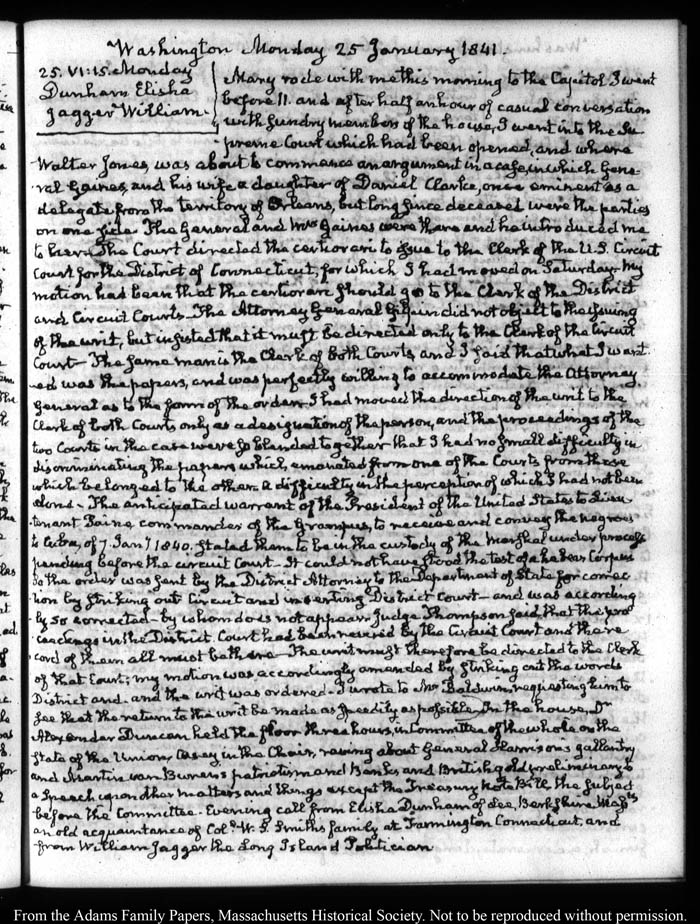 Washington Monday 25 January 1841.
25. VI:15. Monday
Dunham Elisha
Jagger William
Mary rode with me this morning to the Capitol I went
before 11. and after half an hour of casual conversation
with sundry members of the house, I went into the Su-
preme Court which had been opened, and where
Walter Jones, was about to commence an argument in a case, in which Gene-
ral Gaines, and his wife a daughter of Daniel Clarke, once eminent as a
delegate from the territory of Orleans, but long since deceased were the parties
on one side. The General and Mrs Gaines were there and he introduced me
to her. The Court directed the certiorari to issue to the Clerk of the U.S. Circuit
Court for the District of Connecticut, for which I had moved on Saturday. My
motion had been that the certiorari should go to the Clerk of the District
and Circuit Courts— The Attorney General Gilpin did not object to the issuing
of the writ, but insisted that it must be directed only to the Clerk of the Circuit
Court— The same man is the Clerk of both Courts, and I said that what I want-
ed was the papers, and was perfectly willing to accommodate the Attorney
General as to the form of the order. I had moved the direction of the writ to the
Clerk of both Courts only as a designation of the person, and the proceedings of the
two Courts in the case were so blended together that I had no small difficulty in
discriminating the papers which emanated from one of the Courts from those
which belonged to the other. a difficulty in the perception of which I had not been
alone— The anticipated warrant of the President of the United States to Lieu-
tenant Paine commander of the Grampus, to receive and convey the negroes
to Cuba, of 7. Jany 1840. stated them to be in the custody of the Marshal under process
pending before the circuit Court— It could not have stood the test of a habeas Corpus
so the order was sent by the District Attorney to the Department of State for correc-
tion by striking out Circuit and inserting District Court— and was according-
ly so corrected— by whom does not appear. Judge Thompson said that the pro-
ceedings in the District Court had been revised by the Circuit Court and the re-
cord of them all must be there— The writ must therefore be directed to the Clerk
of that Court; my motion was accordingly amended by striking out the words
District and— and the writ was ordered— I wrote to Mr Baldwin, requesting him to
see that the return to the writ be made as speedily as possible— In the house, Dr
Alexander Duncan held the floor three hours, in Committee of the whole on the
state of the Union, Casey in the Chair, raving about General Harrison's gallantry
and Martin van Buren's patriotism and Banks and British gold, preliminary to
a Speech upon other matters and things except the Treasury Note Bill the subject
before the Committee. Evening call from Elisha Dunham of Lee, Berkshire, Masstts
an old acquaintance of Coll. W. S. Smith's family at Farmington Connecticut, and
from William Jagger the Long Island Politician
From the Adams Family Papers, Massachusetts Historical Society. Not to be reproduced without permission.